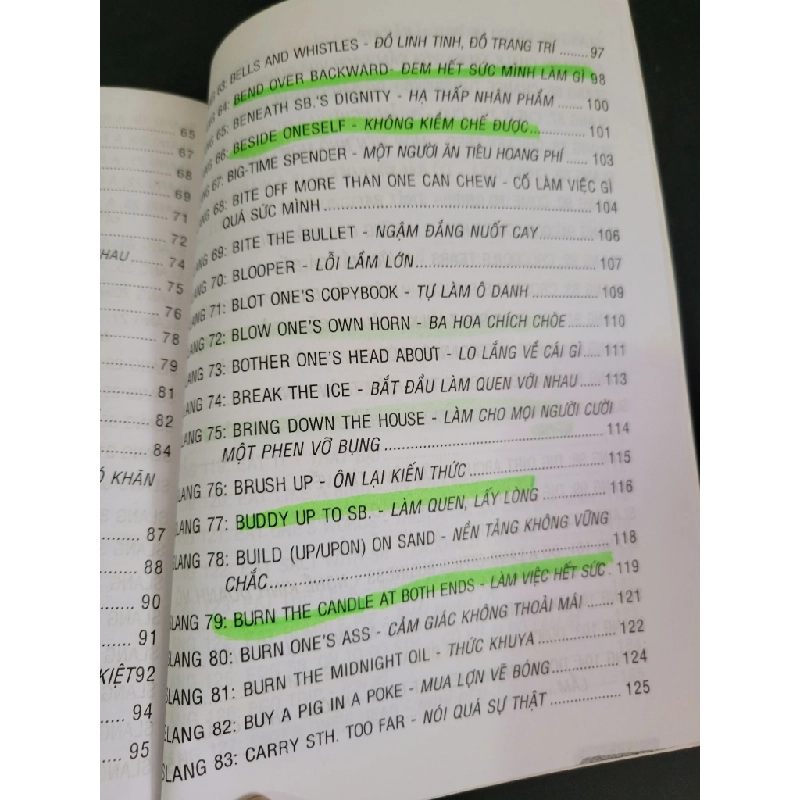 65
67
68
69
71
72
HAU 74
75
76
78
79
81
82
84
Ó KHĂN
87
88
90
91
KIỆT92
94
95
NG 63: BELLS AND WHISTLES - ĐỒ LINH TINH, ĐỒ TRANG TRÍ ........ 97
NG 64: BEND OVER BACKWARD- ĐEM HẾT SỨC MÌNH LÀM GÌ 98
NG 65: BENEATH SB.'S DIGNITY - HẠ THẤP NHÂN PHẨM ........ 100
NG 66: BESIDE ONESELF - KHÔNG KIỀM CHẾ ĐƯỢC........ 101
NG 67: BIG-TIME SPENDER - MỘT NGƯỜI ĂN TIÊU HOANG PHÍ ..... 103
ANG 68: BITE OFF MORE THAN ONE CAN CHEW - CỐ LÀM VIỆC GÌ
QUÁ SỨC MÌNH........ 104
ANG 69: BITE THE BULLET - NGẬM ĐẮNG NUỐT CAY........ 106
ANG 70: BLOOPER - LỖI LẦM LỚN........ 107
LANG 71: BLOT ONE'S COPYBOOK - TỰ LÀM Ô DANH ........ 109
LANG 72: BLOW ONE'S OWN HORN - BA HOA CHÍCH CHÒE ........ 110
LANG 73: BOTHER ONE'S HEAD ABOUT - LO LẮNG VỀ CÁI GÌ ..... 111
LANG 74: BREAK THE ICE - BẮT ĐẦU LÀM QUEN VỚI NHAU ...... 113
LANG 75: BRING DOWN THE HOUSE - LÀM CHO MỌI NGƯỜI CƯỜI
MỘT PHEN VỠ BỤNG........ 114
LANG 76: BRUSH UP - ÔN LẠI KIẾN THỨC ........ 115
LANG 77: BUDDY UP TO SB. - LÀM QUEN, LẤY LÒNG ........ 116
LANG 78: BUILD (UP/UPON) ON SAND - NỀN TẢNG KHÔNG VỮNG
CHẮC........ 118
SLANG 79: BURN THE CANDLE AT BOTH ENDS - LÀM VIỆC HẾT SỨC . 119
SLANG 80: BURN ONE'S ASS - CẢM GIÁC KHÔNG THOẢI MÁI ...... 121
SLANG 81: BURN THE MIDNIGHT OIL - THỨC KHUYA ........ 122
SLANG 82: BUY A PIG IN A POKE - MUA LỢN VẼ BÓNG........ 124
SLANG 83: CARRY STH. TOO FAR - NÓI QUÁ SỰ THẬT ........ 125